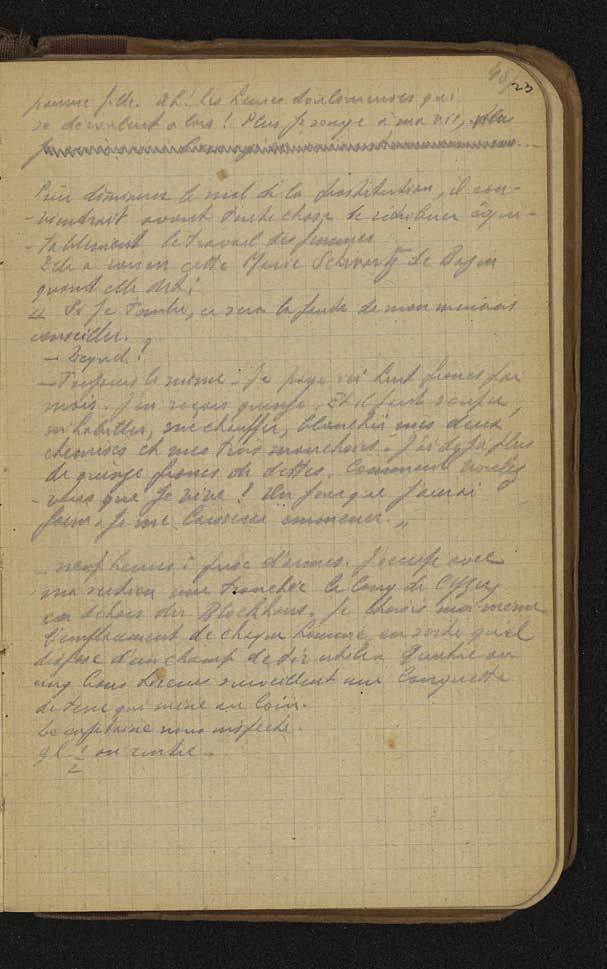 23
pauvre fille. Ah! les heures douloureuses qui
se déroulent alors! Plus je songe à ma vie, plus
Pour diminuer le mal de la prostitution, il con-
-viendrait avant toute chose de rétribuer équi-
-tablement le travail des femmes.
Elle a raison cette Marie Schwartz de
quand elle dit:
"Si je tombe, ce sera la faute de mon mauvais
conseiller.
- Lequel?
- Toujours le même: Je paye huit francs par
mois. J'en reçois quinze. Et il faut souper,
m'habiller, me chauffer, blanchir mes deux
chemises et mes trois mouchoirs. J'ai déjà plus
de quinze francs de dettes. Comment voulez
-vous que je vive! Un jour que j'aurai
faim, je me laisserai emmener."
neuf heures: prise d'armes. J'occupe avec
ma section une tranchée le long de
en dehors du Blockhaus. Je choisis moi-même
l'emplacement de chaque homme, en sorte qu'il
dispose d'un champ de tir utile. Quatre ou
cinq bons tireurs surveillent une languette
de terre qui mène au loin.
Le capitaine nous inspecte.
9h 1/2 on rentre.